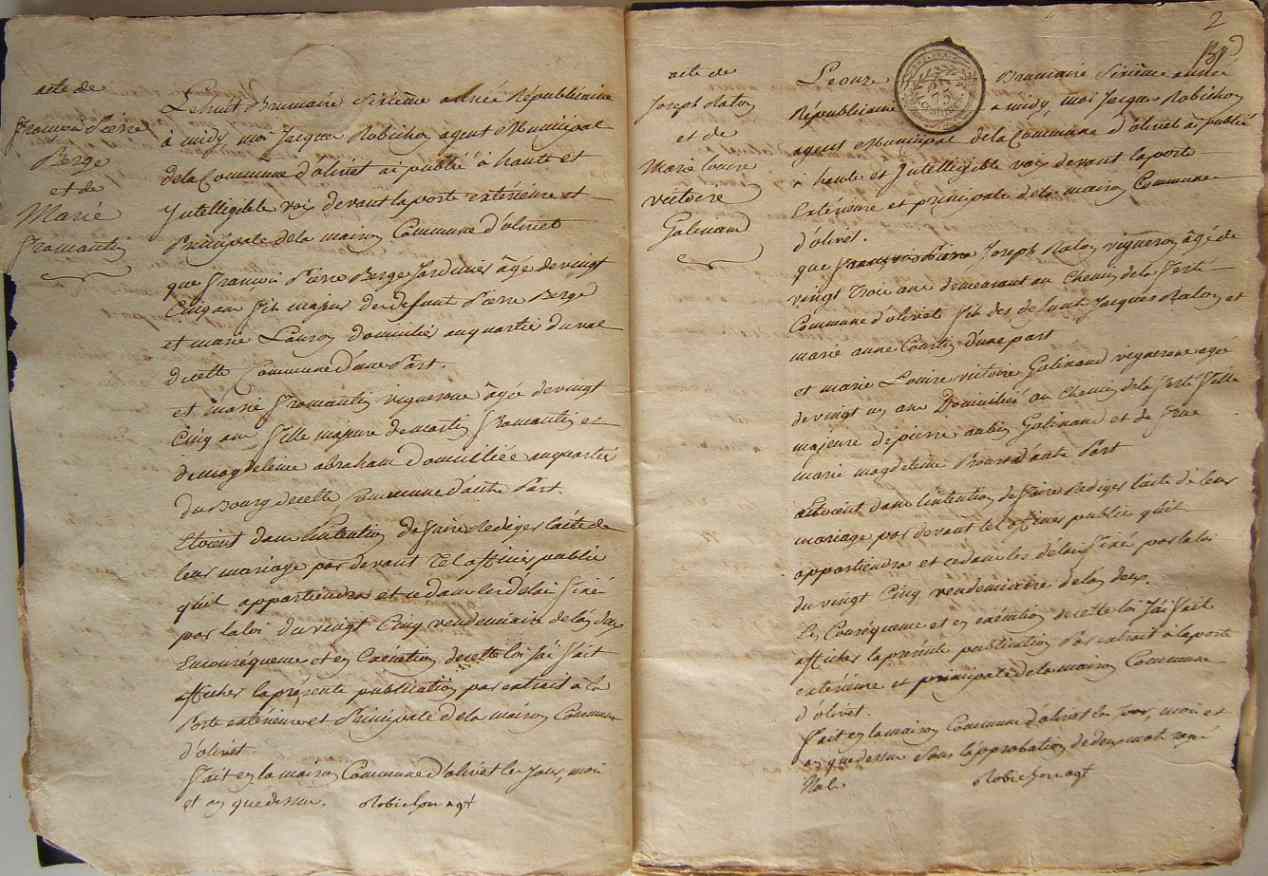 acte de
francois Pierre
Berge
et de
Marie
fromantin
Le huit Brumaire Sixième année Républicaine
à midy moi Jacque Robichon agent Municipal
de la Commune d'olivet ai publié à haute et
Jntelligible voix devant la porte extérieure et
Principale de la maison Commune d'olivet
que francois Pierre Berge Jardinier âgé de vingt
Cinq ans fils majeur de defunt Pierre Berge
et marie domicilié au quartier du val
de cette Commune d'une Part.
et marie fromantin vigneronne âgée de vingt
Cinq ans fille majeure de martin fromantin et
de magdeleine abraham Domiciliée au quartié
du Bourg de cette Commune d'autre Part.
étoient dans l'intention de faire rediger l'acte de
leur mariage par devant tel officier public
qu'il appartiendra et ce dans les délai fixé
par la loi du vingt Cinq vendemiaire de l'an deux
En conséquence et en Exécution de cette loi J'ai fait
afficher la présente publication par extrait à la
Porte extérieure et Principale de la maison Commune
d'olivet.
fait en la maison Commune d'olivet les Jour, mois
et an que dessus. Robichon agt
2
acte de
Joseph Ralon
et de
Marie louise
victoire
Galinand
Le onze Brumaire Sixième année
Républicaine à midy moi Jacque Robichon
agent Municipal de la Commune d'olivet ai publié
à haute et Jntelligible voix devant la porte
Extérieure et principale de la maison Commune
d'olivet.
que francois Pierre Joseph Ralon vigneron âgé de
vingt trois ans demeurant au Chemin de la ferté
Commune d'olivet fils de Jacques Ralon et
marie anne Courtin d'une part
et marie Louise victoire Galinand vigneronne agée
de vingt un ans Domiciliée au Chemin de la ferté fille
majeure de pierre aubin Galinand et de
marie magdeleine d'autre Part
étoient dans l'intention de faire rediger l'acte de leur
mariage par devant tel officier public qu'il
appartiendra et ce dans les délai fixé par la loi
du vingt Cinq vendemiaire de l'an deux.
En Conséquence et en exécution de cette loi J'ai fait
afficher la présente publication Par extrait à la porte
extérieure et principale de la maison Commune
d'olivet.
fait en la maison Commune d'olivet les Jour, mois et
an que dessus sous l'approbation de deux mots rayé
Nul. Robichon agt